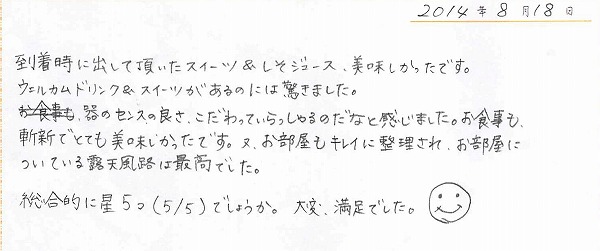 2014年8月18日
到着時に出して頂いたスイーツ&しそジュース、美味しかったです。
ウェルカムドリンク&スイーツがあるのには驚きました。
お食事も、器のセンスの良さ、こだわっていらっしゃるのだなと感じました。お食事も、
斬新でとても美味しかったです。又、お部屋もキレイに整理され、お部屋に
ついている露天風路は最高でした。
総合的に星5つ(5/5)でしょうか。大変、満足でした。